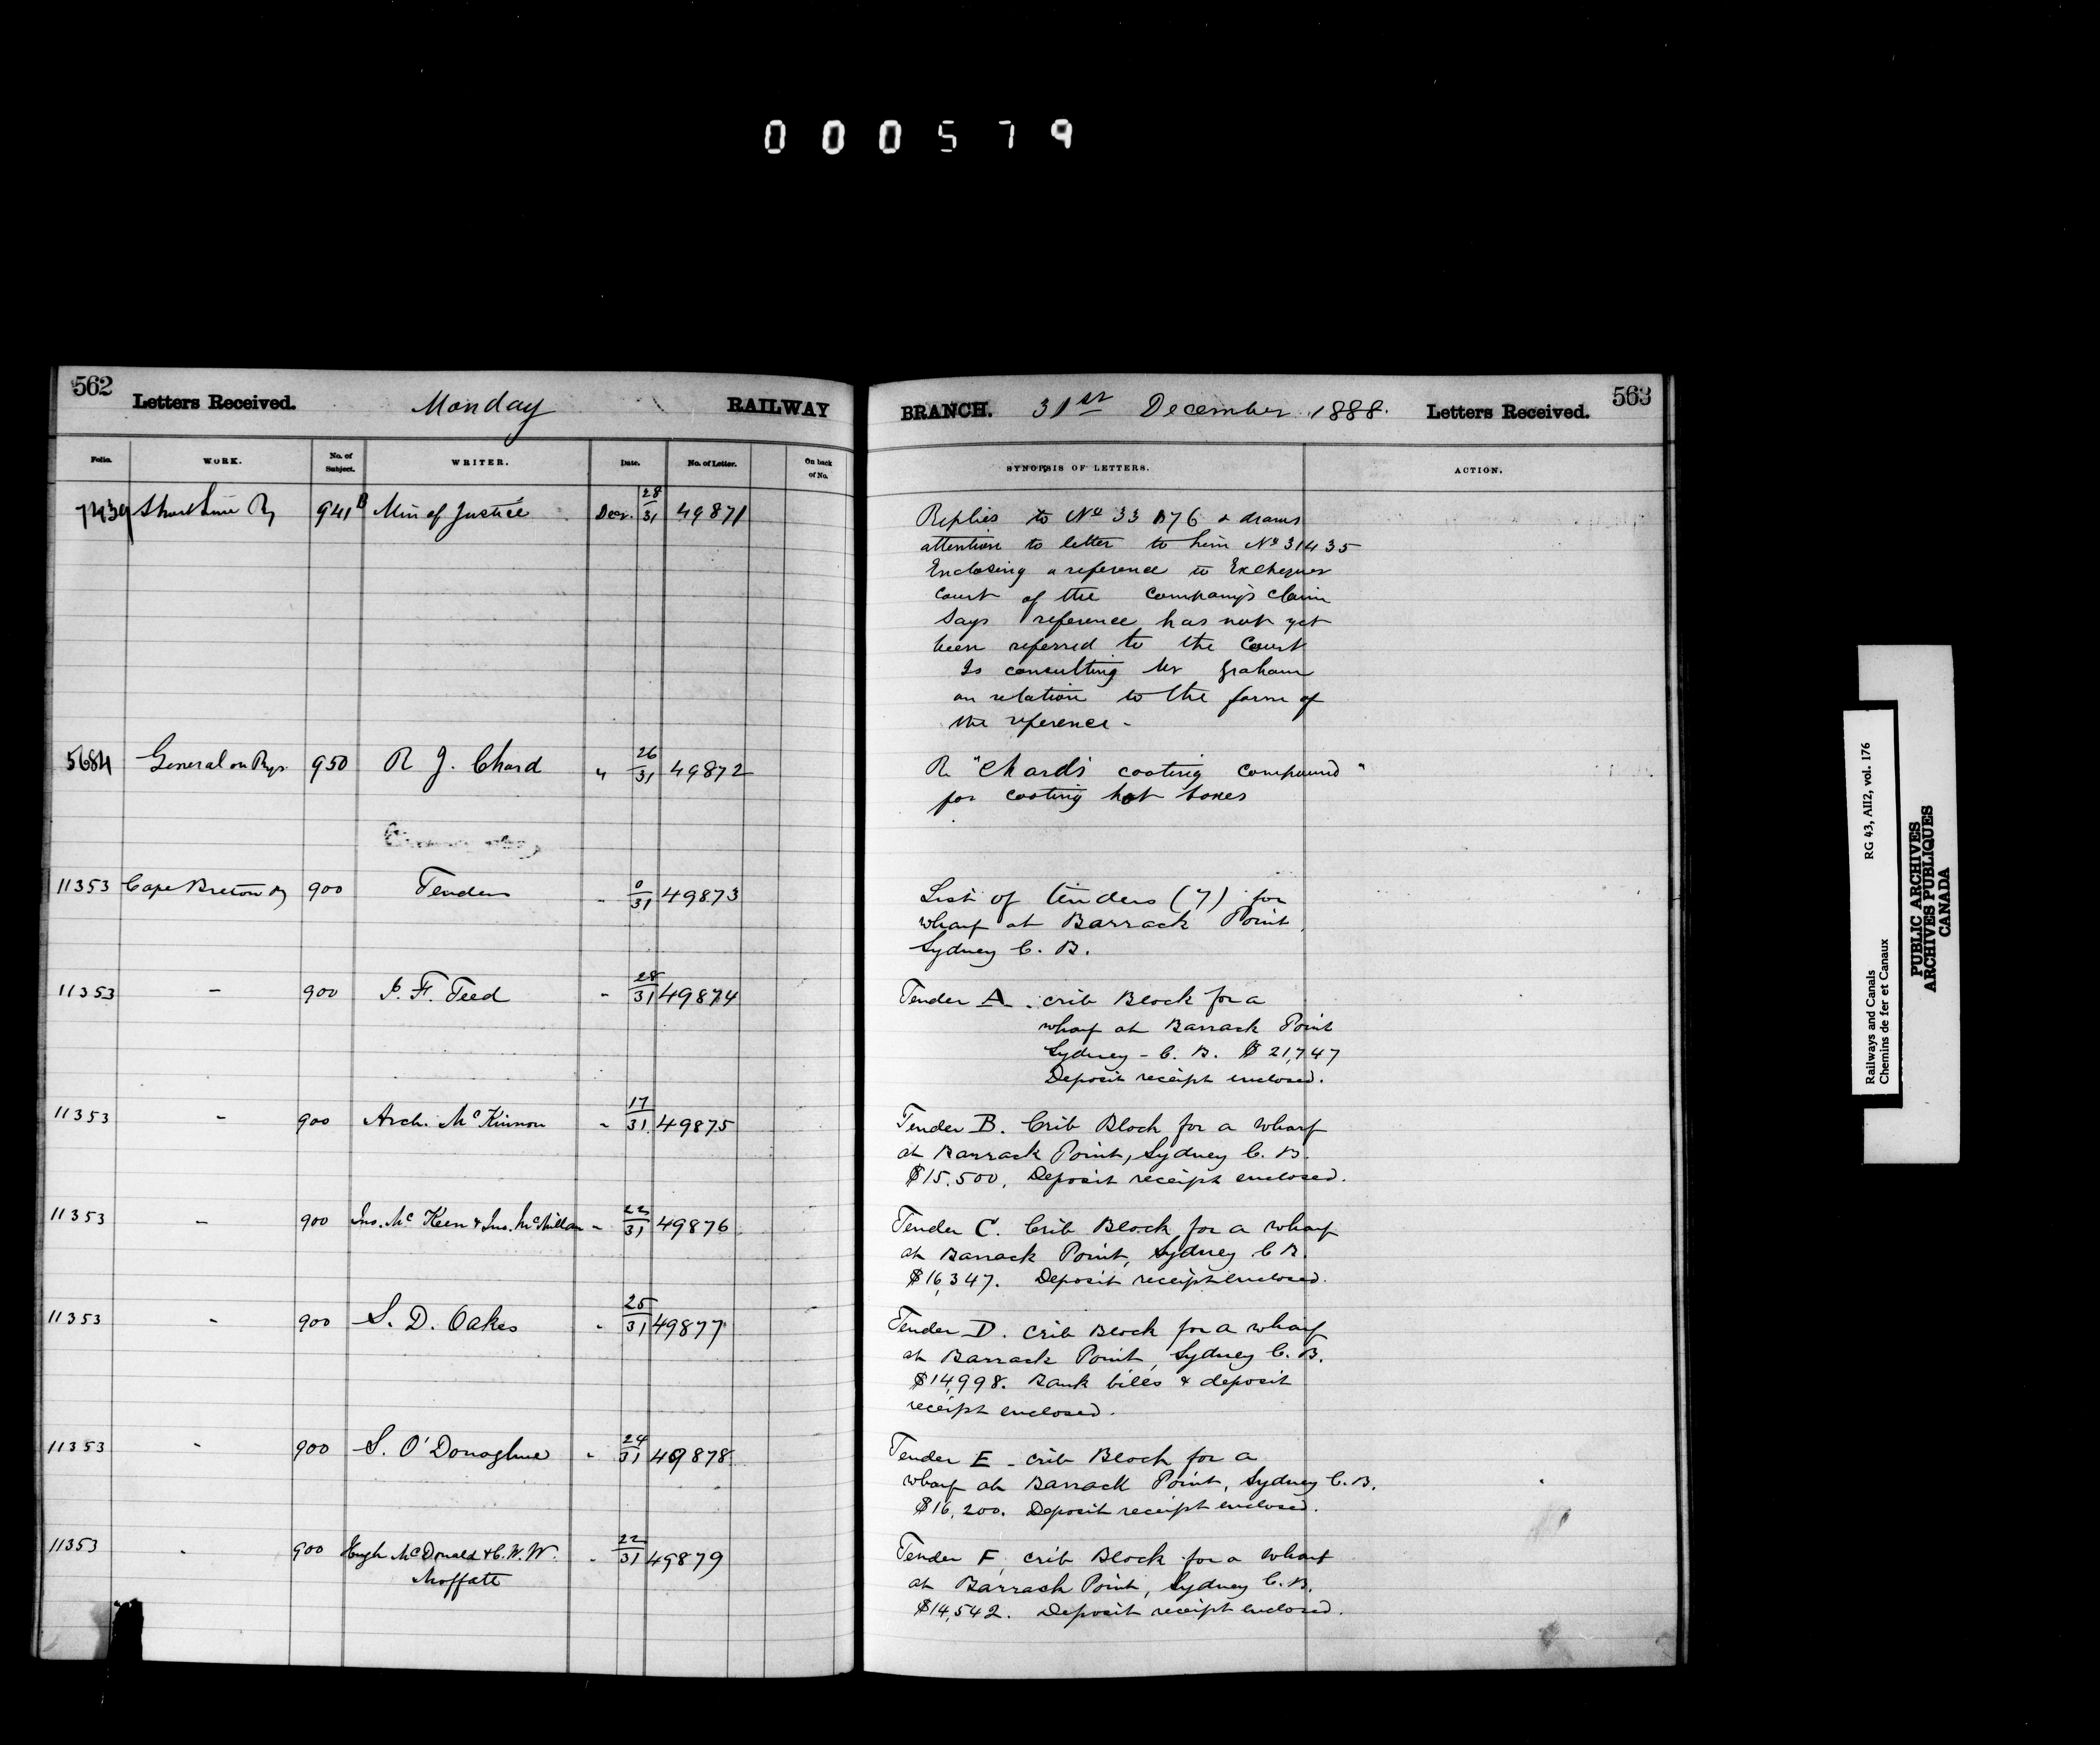 000579
562
Letters Received.
Monday
RAILWAY
Folio.
WORK.
No. of Subject.
WRITER.
Date.
No. of Letter.
On back of No.
7439 Short Line Ry 941B Min of Justice Decr. 28/31 49871
5684 General on Rys 950 R J. Chard " 26/31 49872
11353 Cape Breton Ry 900 Tenders - 0/31 49873
11353 - 900 J. F. Teed - 28/31 49874
11353 - 900 Arch. McKinnon - 17/31 49875
11353 - 900 Jno. McKeen & Jno. McMillan - 22/31 49876
11353 - 900 S. D. Oakes - 25/31 49877
11353 - 900 S. O'Donoghue - 24/31 49878
11353 - 900 Hugh McDonald & C. W. W. - 22/31 49879
Moffatt
BRANCH.
31st December 1888.
Letters Received.
563
SYNOPSIS OF LETTERS.
ACTION.
Replies to No 33176 & draws
attention to letter to him No 31435
Enclosing a reference to Exchequer
Court of the Company's claim
Says reference has not yet
been referred to the Court
Is consulting Mr Graham
on relation to the form of
the reference -
R. "Chard's coating compound"
for coating hot boxes
List of tenders (7) for
wharf at Barrack Point,
Sydney C. B.
Tender A. crib Block for a
wharf at Barrack Point
Sydney - C. B. $21,747
Deposit receipt enclosed.
Tender B. Crib Block for a wharf
at Barrack Point, Sydney C. B.
$15,500, Deposit receipt enclosed.
Tender C. Crib Block for a wharf
at Barrack Point, Sydney C B.
$16,347. Deposit receipt enclosed.
Tender D. Crib Block for a wharf
at Barrack Point, Sydney C. B.
$14,998. Bank bills & deposit
receipt enclosed.
Tender E - crib Block for a
wharf at Barrack Point, Sydney C. B.
$16,200. Deposit receipt enclosed.
Tender F, crib Block for a wharf
at Barrack Point, Sydney C. B.
$14,542. Deposit receipt enclosed.
Railways and Canals RG 43, AII2, vol. 176
Chemins de fer et Canaux
PUBLIC ARCHIVES
ARCHIVES PUBLIQUES
CANADA